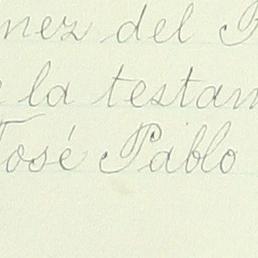 nez del
la testam
José Pablo